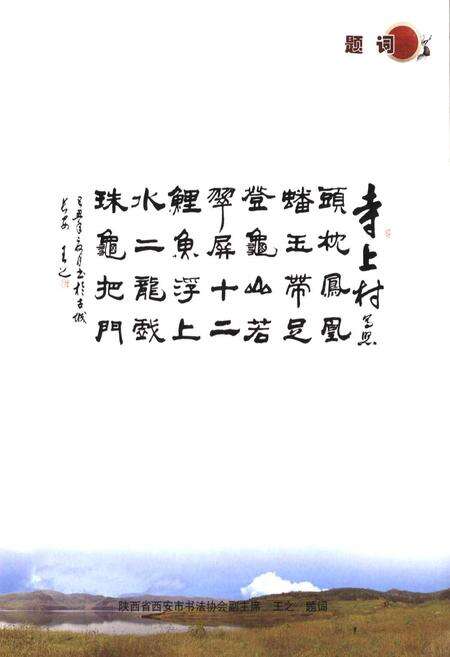 题词
寺上村写照
頭枕鳳凰
蟠玉帶足
登龜山若
翠屏十二
鯉魚浮上
水二龍戲
珠龜把門
己丑年月书於古城
长安 王之
陕西省西安市书法协会副主席 王之 题词